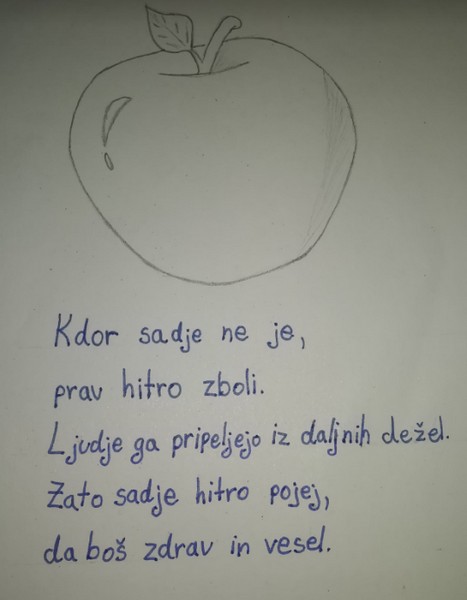 Kdor sadje ne je,
prav hitro zboli.
Ljudje ga pripeljejo iz daljnih dežel.
Zato sadje hitro pojej,
da boš zdrav in vesel.